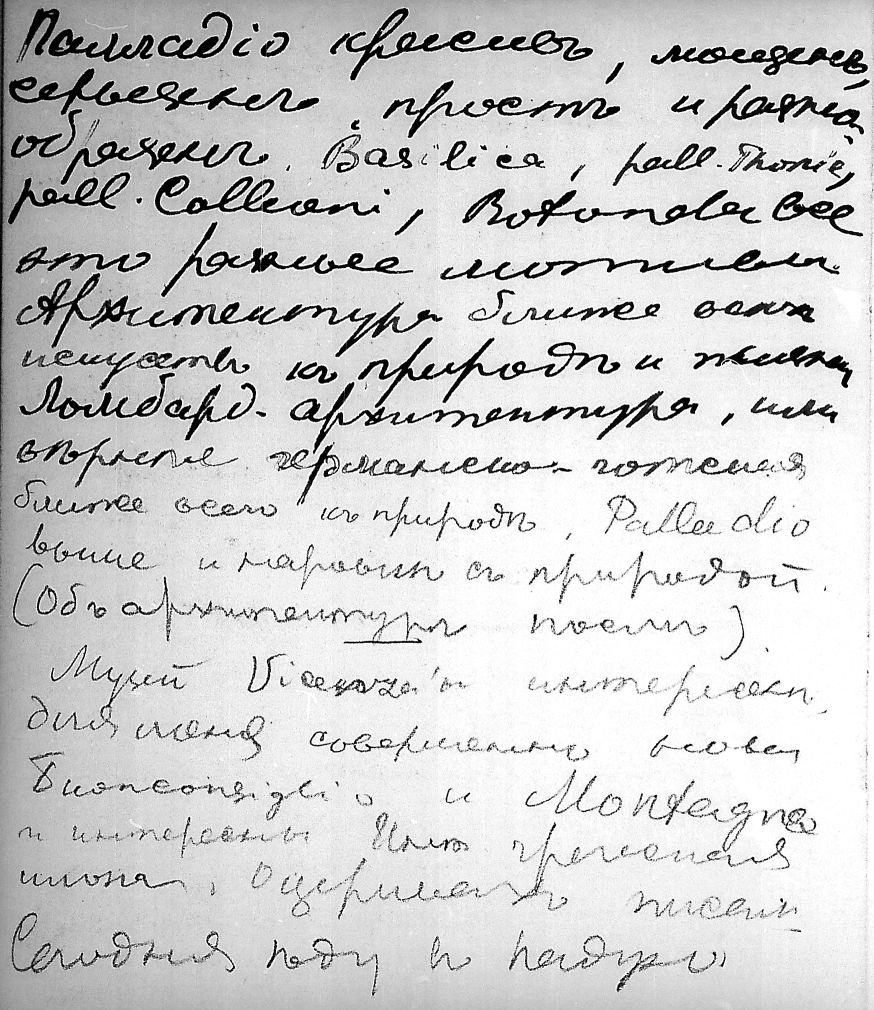 Палладіо красивъ, мощенъ,
серьезенъ, простъ и разно-
образенъ. Basilica, pall. Thiene,
pall. Colleoni, Rotonda все
это разные мотивы.
Архитектура ближе всѣхъ
искусствъ къ природѣ и
Ломбард. архитектура, или
вѣрнѣе германско-готская
ближе всего къ природѣ, Palladio
выше и наравнѣ съ природой.
(Объ архитектурѣ послѣ)
Музей Vicenza'ы интересенъ,
для меня совершенно новы
Buonconsiglio и Montagna
и интересны. Есть греческая
икона. О церквахъ писали
Сегодня ѣду в Падую.